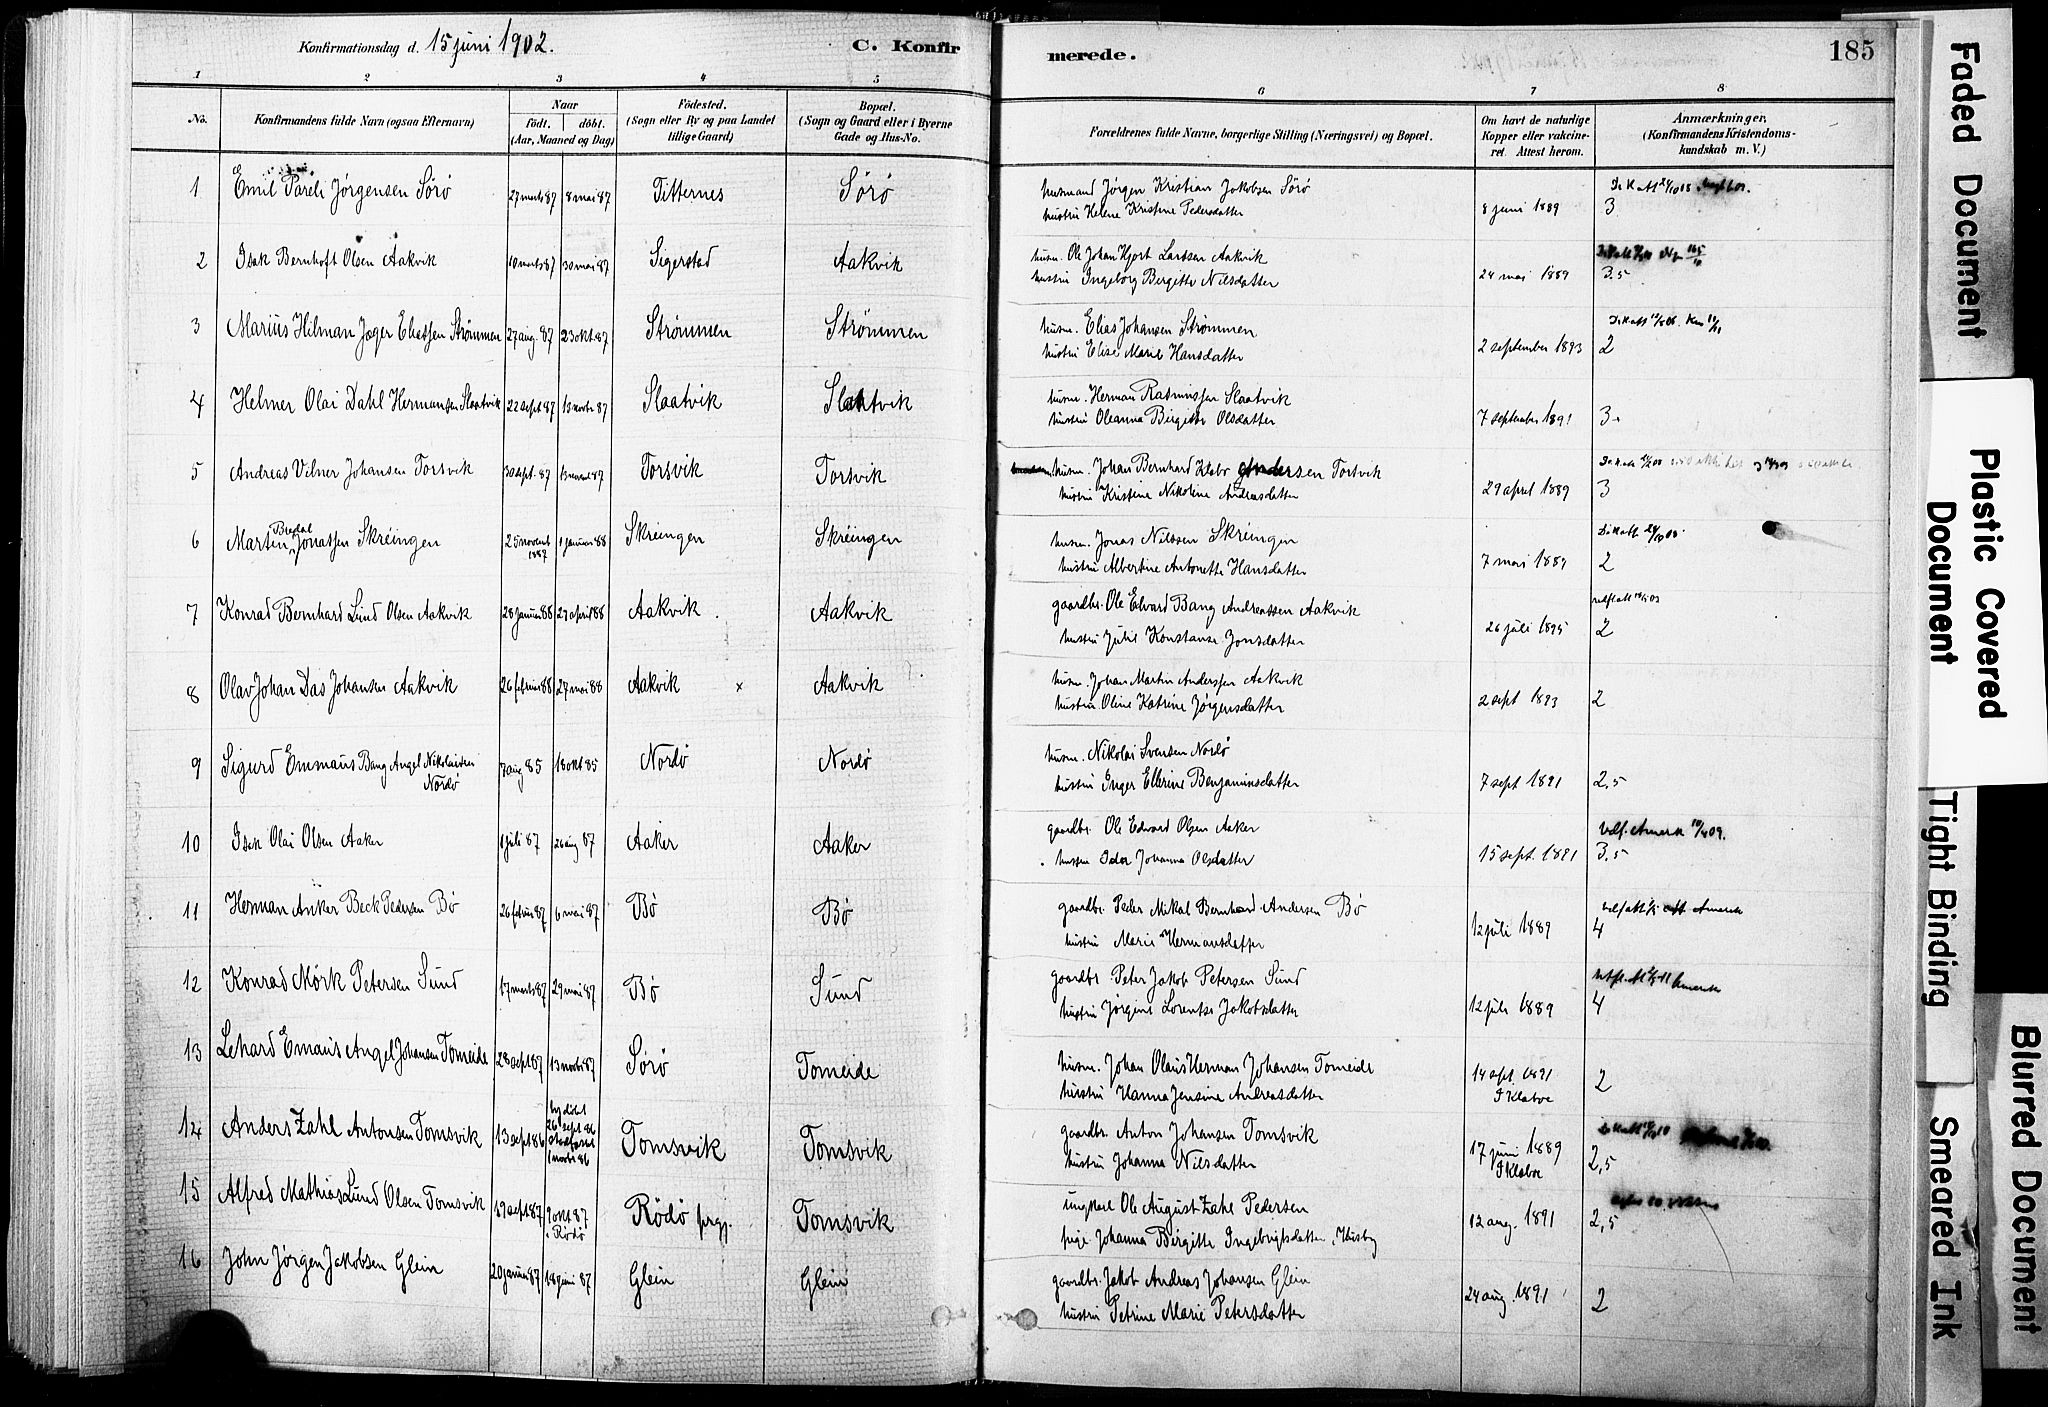 Konfirmationsdag d. 15 juni 1902. C. Konfir merede. 185
1 2 3 4 5 6 7 8
No. Konfirmandens fulde Navn (ogsaa Efternavn) Naar födt. döbt. (Aar, Maaned og Dag) Födested. (Sogn eller By og paa Landet tillige Gaard) Bopæl. (Sogn og Gaard eller i Byerne Gade og Hus-No. Forældrenes fulde Navne, borgerlige Stilling (Næringsvei) og Bopæl. Om havt de naturlige Kopper eller vakcineret. Attest herom. Anmærkninger. (Konfirmandens Kristendomskundskab m. V.)
1 Emil Pareli Jørgensen Sörö 27 marts 87 8 mai 87 Titternes Sörö husmand Jørgen Kristian Jakobsen Sörö
hustru Helene Kristine Pedersdatter 8 juni 1889 3
2 Isak Bernhoft Olsen Aakvik 10 marts 87 30 mai 87 Sigerstad Aakvik husm. Ole Johan Hjort Larssen Aakvik
hustru Ingeborg Bergitte Nilsdatter 24 mai 1889 3.5
3 Marius Hilman Jæger Eliassen Strømmen 27 aug. 87 23 okt. 87 Strømmen Strømmen husm. Elias Johansen Strømmen
hustru Elise Marie Hansdatter 2 september 1893 2
4 Helmer Olai Dahl Hermansen Slaatvik 22 sept 87 13 novbr 87 Slaatvik Slaatvik husm. Herman Rasmussen Slaatvik
hustru Oleanna Birgitte Olsdatter 7 september 1891 3
5 Andreas Vilner Johansen Torsvik 30 sept. 87 Torsvik Torsvik husm. Johan Bernhard Klabo Andersen Torsvik
hustru Kristine Nikoline Andreasdatter 29 april 1889 3
6 Martin Bredal Jonassen Skreingen 25 novemb 1887 1 januar 88 Skreingen Skreingen husm. Jonas Nilssen Skreingen
hustru Albertine Antonette Hansdatter 7 mai 1889 2
7 Konrad Bernhard Lund Olsen Aakvik 28 januar 88 29 april 88 Aakvik Aakvik gaardbr. Ole Edvard Bang Andreassen Aakvik
hustru Julie Konstanse Jonsdatter 26 juli 1895 2
8 Olav Johan Das Johansen Aakvik 26 februar 88 27 mai 88 Aakvik x Aakvik husm. Johan Martin Anderssen Aakvik
hustru Oline Katrine Jörgensdatter 2 sept 1893 2
9 Sigurd Emmaus Bang Angel Nikolaisen Nordö 7 aug 85 18 okt 85 Nordö Nordö husm. Nikolai Svensen Nordö
hustru Inger Ellerine Benjaminsdatter 7 sept 1891 2,5
10 Isak Olai Olsen Aaker 1 juli 87 26 aug 87 Aaker Aaker gaardbr. Ole Edvard Olsen Aaker
hustru Ida Johanna Olsdatter 15 sept. 1891 3.5
11 Herman Anker Beck Pedersen Bö 26 februar 87 6 mai 87 Bö Bö gaardbr. Peder Mikal Bernhard Andersen Bö
hustru Marie Hermansdatter 12 juli 1889 4
12 Konrad Mörk Petersen Sund 17 marts 87 29 mai 87 Bö Sund gaardbr. Peter Jakob Petersen Sund
hustru Jørgine Lorentse Jakobsdatter 12 juli 1889 4
13 Lehard Emaus Angel Johansen Tomeide 28 sept 87 13 novbr 87 Sörö Tomeide husm. Johan Olaus Herman Johansen Tomeide
hustru Hanna Jensine Andreasdatter 14 sept. 1891 2
14 Anders Zahl Antonsen Tomsvik 13 sept 86 hjdöbt 26 sept 86 stadfæstet 1 novbr 86 Tomsvik Tomsvik gaardbr. Anton Johansen Tomsvik
hustru Johanna Nilsdatter 17 juni 1889 2,5
15 Alfred Mathias Lund Olsen Tomsvik 19 sept 87 9 okt 87 i Rödö Rödö prgj. Tomsvik ungkarl Ole August Zahl Pedersen
pige Johanna Birgitte Ingebrigtsdatter, Husby 12 aug. 1891 2,5
16 John Jörgen Jakobsen Glein 20 januar 87 19 juni 87 Glein Glein gaardbr. Jakob Andreas Johansen Glein
hustru Petrine Marie Petersdatter 24 aug. 1891 2
Faded Document
Plastic Covered Document
Tight Binding
Blurred Document
Smeared Ink